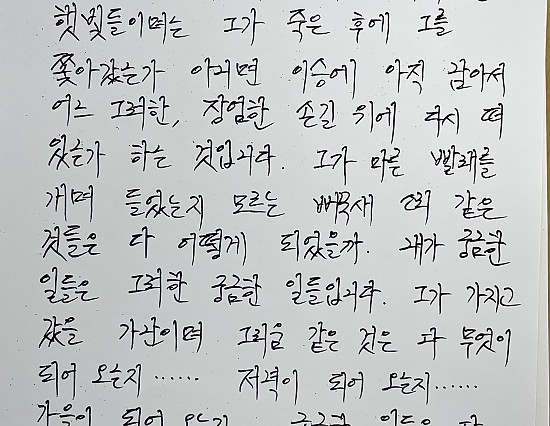 햇빛들이며는 그가 죽은 후에 그를
쫓아갔는가 아니면 이승에 아직 남아서
어느 그러한, 장엄한 손길 위에 다시 떠
있는가 하는 것입니다. 그가 마른 빨래를
개며 들었는지 모르는 뻐꾹새 소리 같은
것들은 다 어떻게 되었을까. 내가 궁금한
일들은 그러한 궁금한 일들입니다. 그가 가지고
갔을 가난이며 그리움 같은 것은 다 무엇이
되어 오는지…… 저녁이 되어 오는지……
가을이 되어 오는지 궁금한 일들은 다